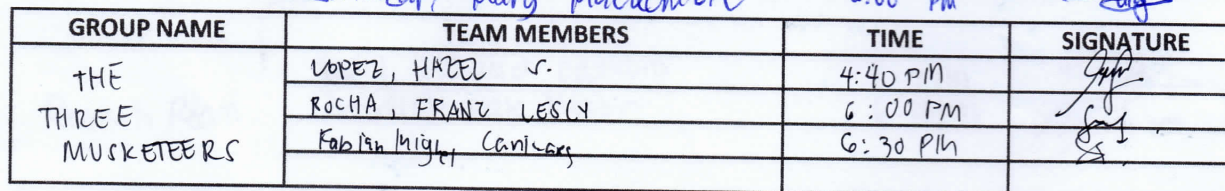 Mary
:00 PM
GROUP NAME TEAM MEMBERS TIME SIGNATURE
THE THREE MUSKETEERS
LOPEZ, HAZEL S. 4:40 PM
ROCHA, FRANZ LESLY 6:00 PM
Fabian Miguel 6:30 PM